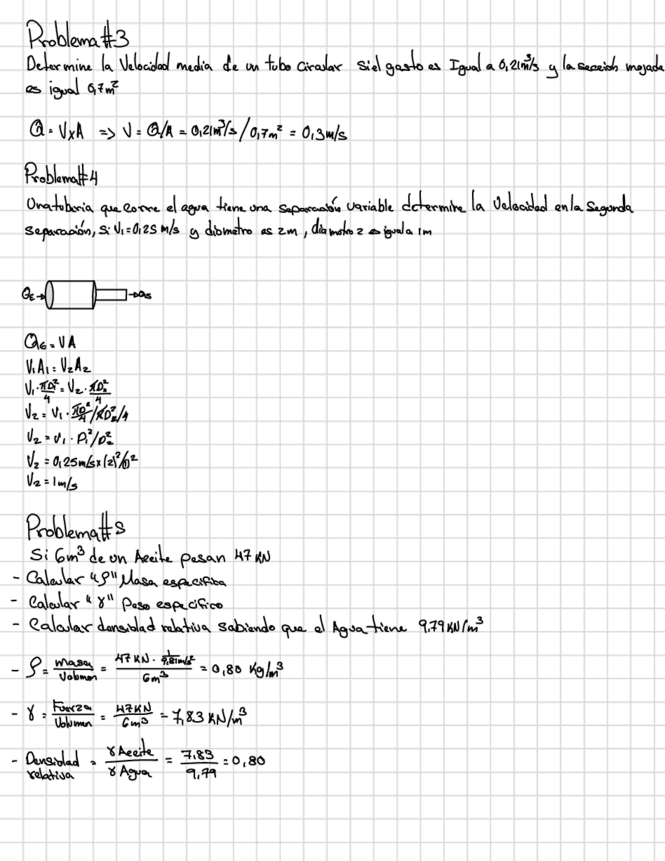 Problema #3
Determine la Velocidad media de un tubo Circular si el gasto es Igual a 0,21m³/s y la sección mojada
es igual 0,7m²
Q = V x A => V = Q/A = 0,21m³/s / 0,7m² = 0,3m/s
Problema #4
Una tuberia que corre el agua tiene una separación variable determine la Velocidad en la Segunda
separación, si V₁=0,25 m/s y diametro es 2m, diametro 2 es igual a 1m
QE → → QS
QE = VA
V₁A₁ = V₂A₂
V₁ · πD₁²/4 = V₂ · πD₂²/4
V₂ = V₁ · πD₁²/4 / πD₂²/4
V₂ = V₁ · D₁²/D₂²
V₂ = 0,25m/s x (2)²/(1)²
V₂ = 1m/s
Problema #5
Si 6m³ de un Aceite pesan 47 KN
- Calcular "ρ" Masa especifica
- Calcular "γ" Peso específico
- Calcular densidad relativa sabiendo que el Agua tiene 9.79 KN/m³
- ρ = masa/Volumen = 47 KN · 1/9,81m/s² / 6m³ = 0,80 Kg/m³
- γ = Fuerza/Volumen = 47KN/6m³ = 7,83 KN/m³
- Densidad relativa = γ Aceite/γ Agua = 7.83/9,79 = 0,80